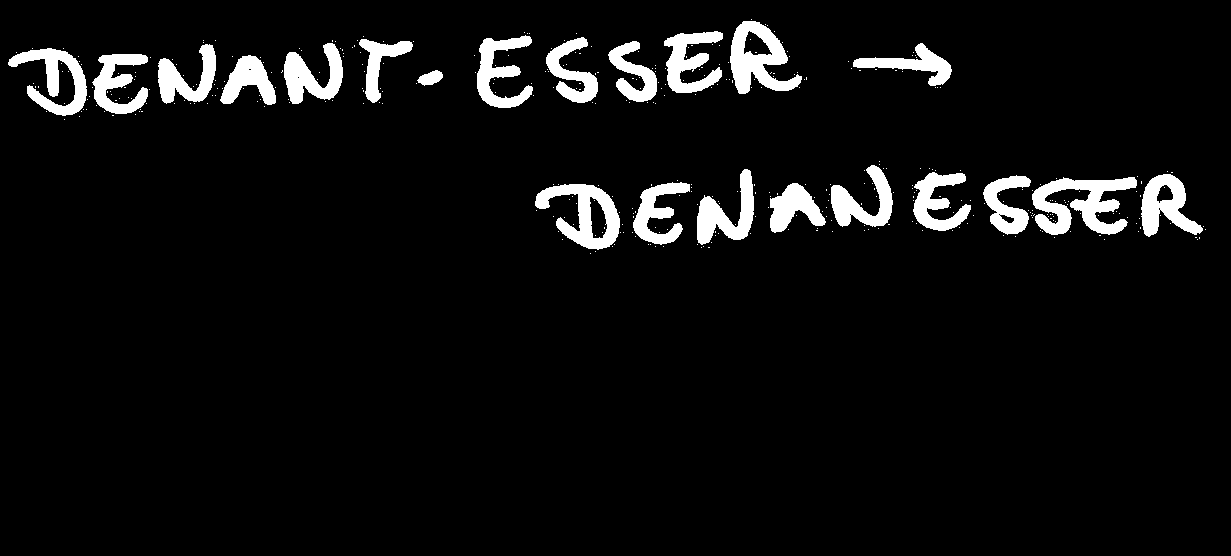 DENANT-ESSER →
DENANESSER